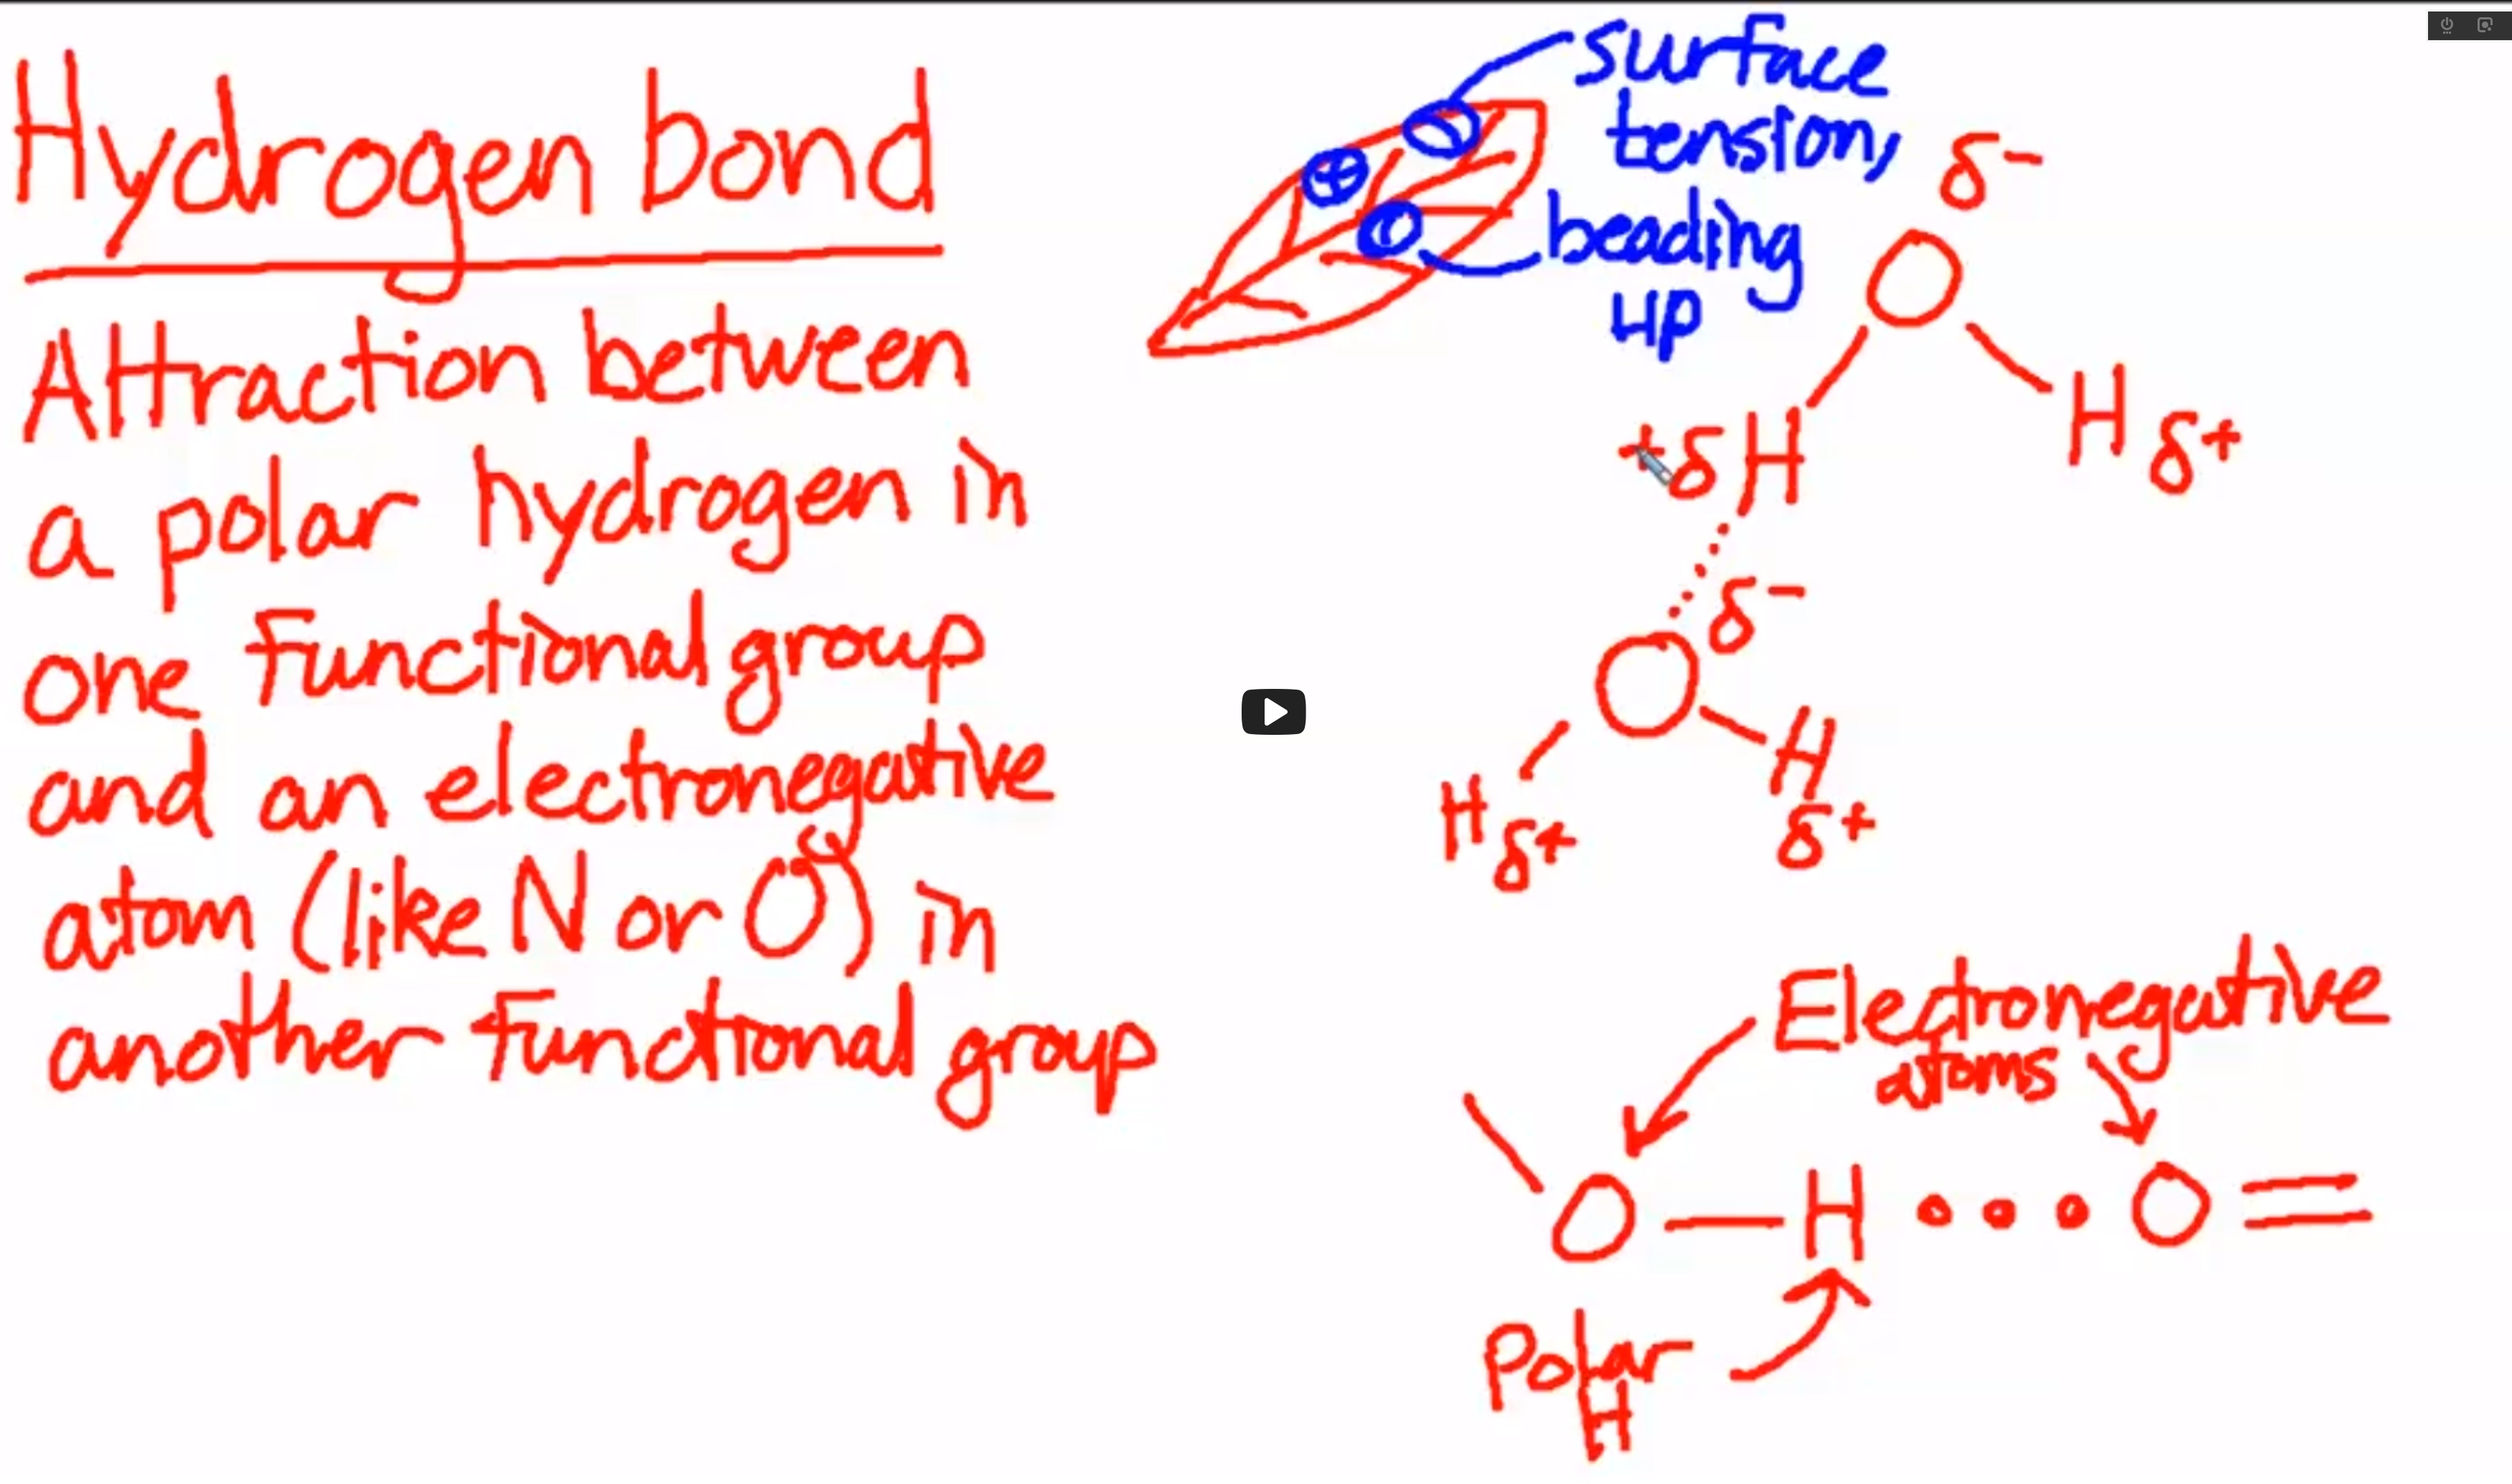 Hydrogen bond
Attraction between
a polar hydrogen in
one functional group
and an electronegative
atom (like N or O) in
another functional group
surface
tension,
beading
up
δ-
O
H δ+
+δ H
δ-
O
H δ+
H
δ+
Electronegative
atoms
O — H • • • O =
Polar
H